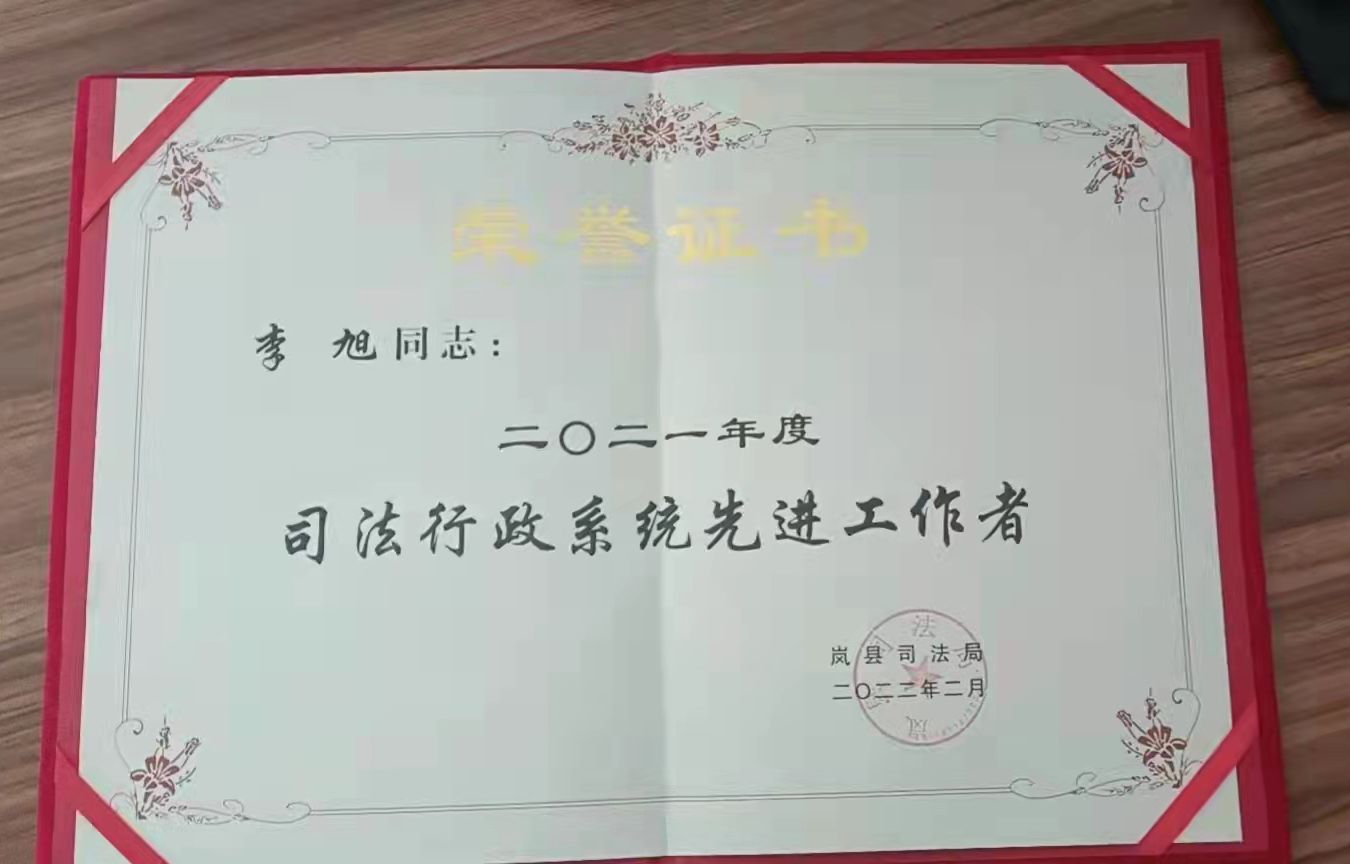 荣誉证书
李 旭同志：
二〇二一年度
司法行政系统先进工作者
岚县司法局
二〇二二年二月